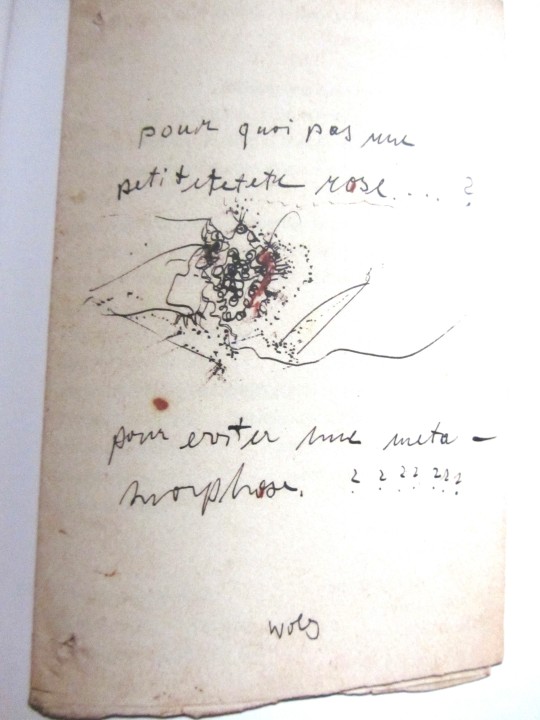 pour quoi pas une
petitetetete rose.... ?
pour eviter une meta-
morphose. ? ? ?? ???
Wols